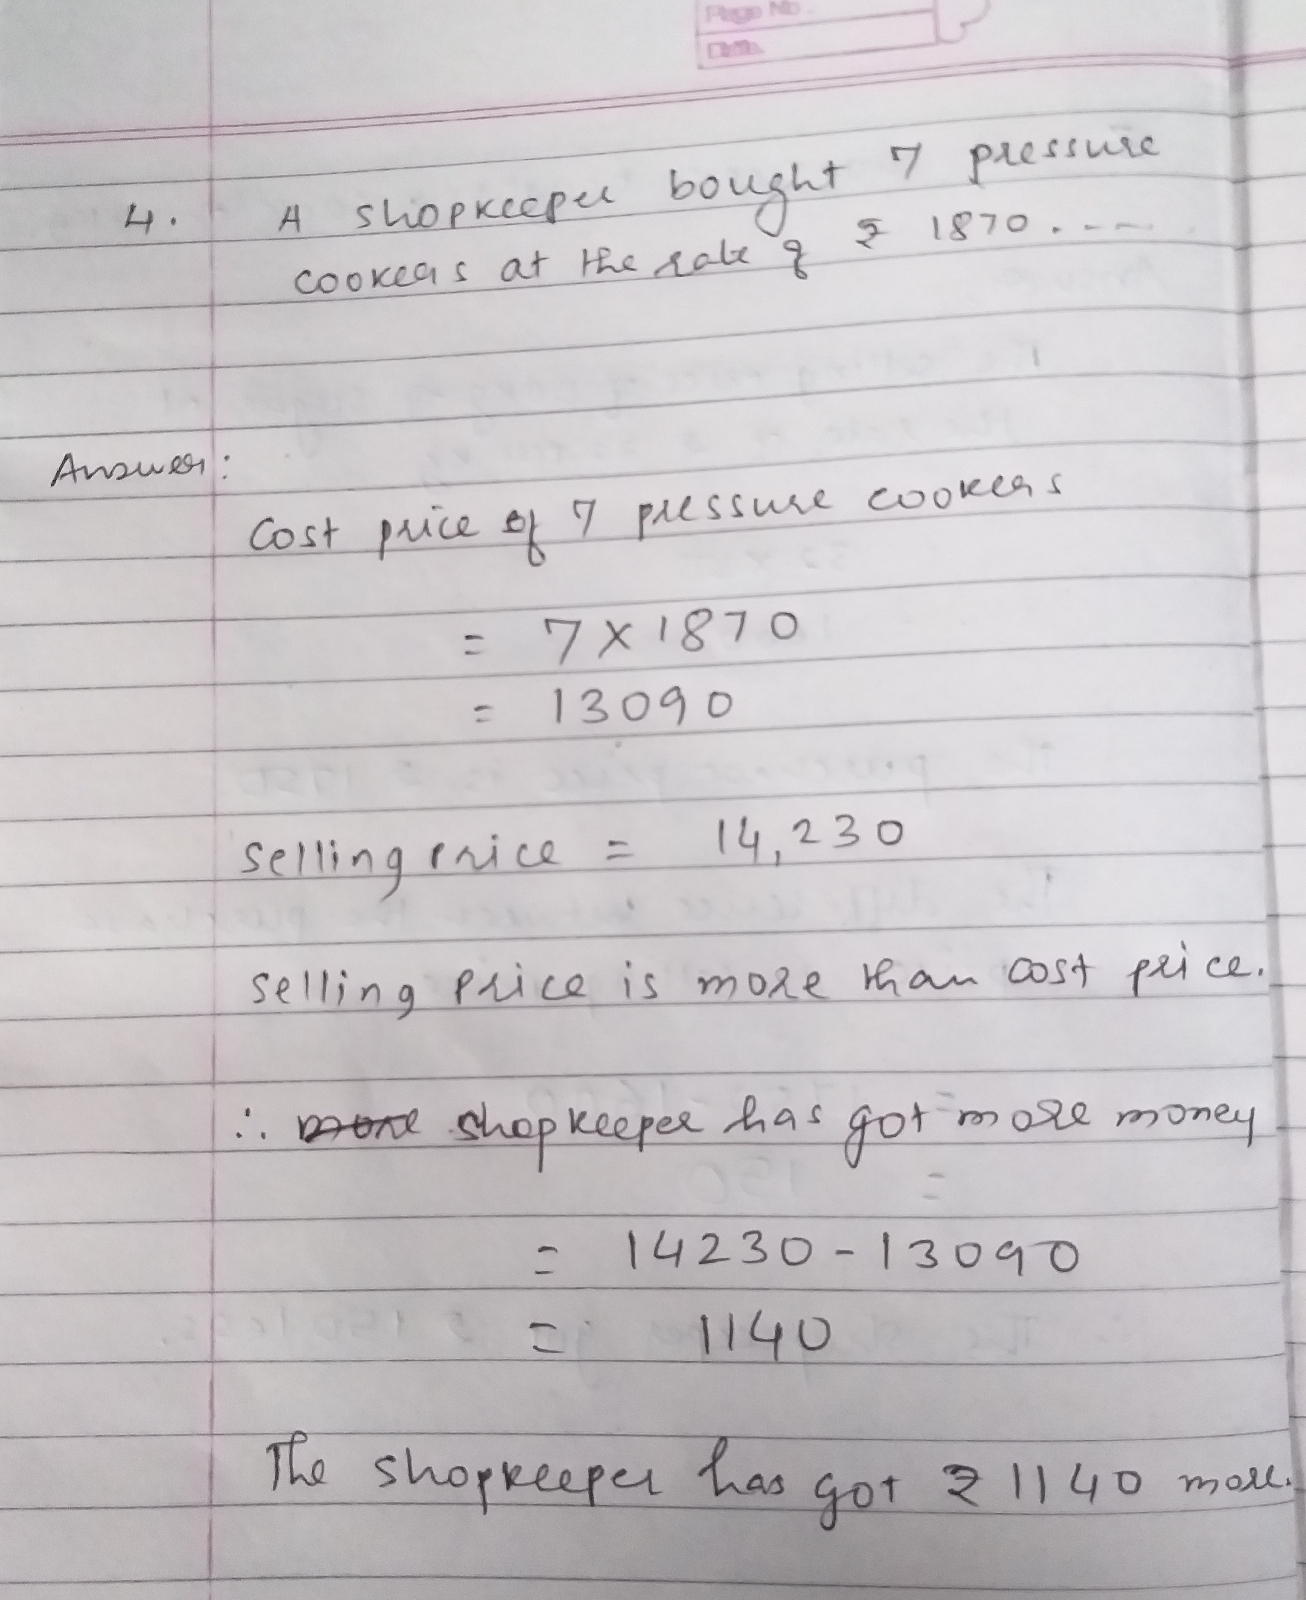 Page No.
Date
4. A shopkeeper bought 7 pressure
cookers at the rate of ₹ 1870 . ---
Answer:
Cost price of 7 pressure cookers
= 7 x 1870
= 13090
Selling price = 14,230
Selling price is more than cost price.
∴ more shopkeeper has got more money
= 14230 - 13090
= 1140
The shopkeeper has got ₹ 1140 more.